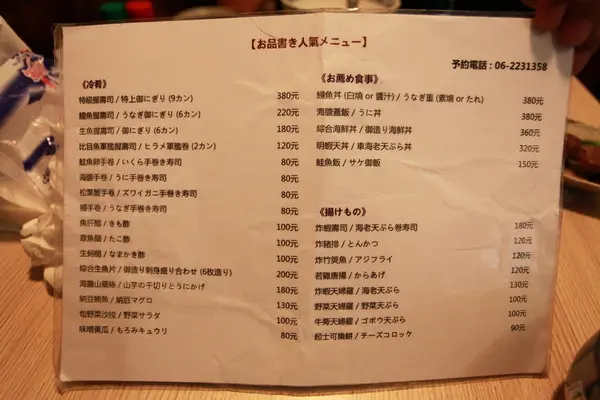 【お品書き人氣メニュー】
予約電話：06-2231358
《冷肴》
特級握壽司 / 特上御にぎり (9カン) 380元
鰻魚握壽司 / うなぎ御にぎり (6カン) 220元
生魚握壽司 / 御にぎり (6カン) 180元
比目魚軍艦握壽司 / ヒラメ軍艦巻 (2カン) 120元
鮭魚卵手卷 / いくら手巻き寿司 80元
海膽手卷 / うに手巻き寿司 80元
松葉蟹手卷 / ズワイガニ手巻き寿司 80元
鰻手卷 / うなぎ手巻き寿司 80元
魚肝醋 / きも酢 100元
章魚醋 / たこ酢 100元
生蚵醋 / なまかき酢 100元
綜合生魚片 / 御造り刺身盛り合わせ (6枚造り) 200元
海膽山藥絲 / 山芋の千切りとうにかけ 180元
納豆鮪魚 / 納豆マグロ 130元
旬野菜沙拉 / 野菜サラダ 100元
味噌黃瓜 / もろみキュウリ 80元
《お薦め食事》
鰻魚丼 (白燒 or 醬汁) / うなぎ重 (素焼 or たれ) 380元
海膽蓋飯 / うに丼 380元
綜合海鮮丼 / 御造り海鮮丼 360元
明蝦天丼 / 車海老天ぷら丼 320元
鮭魚飯 / サケ御飯 150元
《揚げもの》
炸蝦壽司 / 海老天ぷら巻寿司 180元
炸豬排 / とんかつ 120元
炸竹筴魚 / アジフライ 120元
若雞唐揚 / からあげ 120元
炸蝦天婦羅 / 海老天ぷら 130元
野菜天婦羅 / 野菜天ぷら 100元
牛蒡天婦羅 / ゴボウ天ぷら 100元
起士可樂餅 / チーズコロッケ 90元